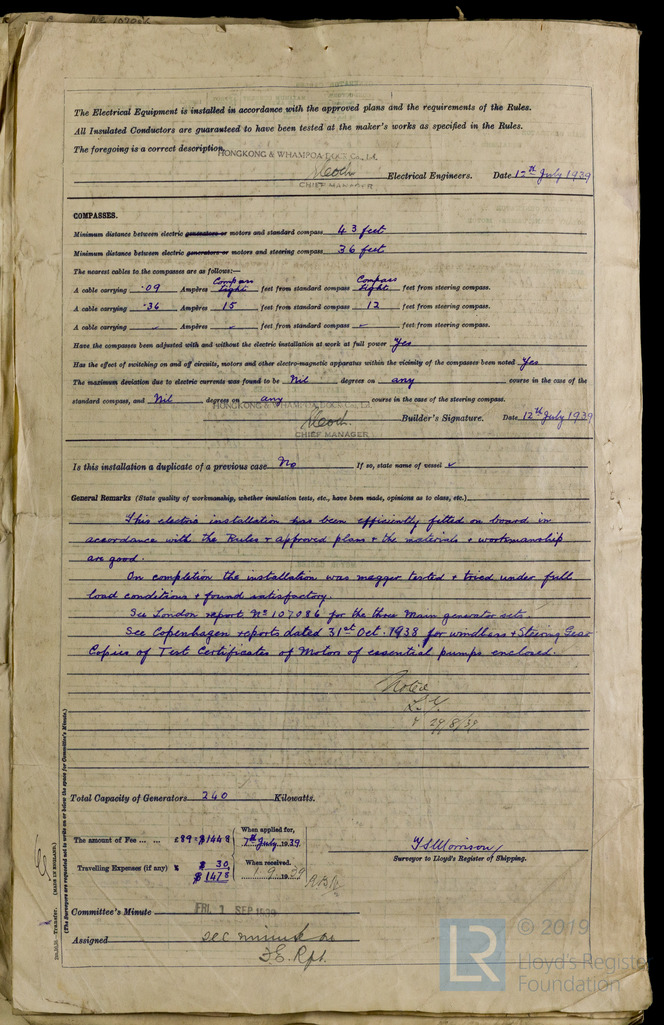 The Electrical Equipment is installed in accordance with the approved plans and the requirements of the Rules.
All Insulated Conductors are guaranteed to have been tested at the maker's works as specified in the Rules.
The foregoing is a correct description,
HONGKONG & WHAMPOA DOCK Co., Ld.
CHIEF MANAGER
Electrical Engineers. Date 12th July 1939
COMPASSES.
Minimum distance between electric generators or motors and standard compass 43 feet
Minimum distance between electric generators or motors and steering compass 36 feet
The nearest cables to the compasses are as follows:—
A cable carrying .09 Ampères Compass light feet from standard compass Compass light feet from steering compass.
A cable carrying .36 Ampères 15 feet from standard compass 12 feet from steering compass.
A cable carrying Ampères feet from standard compass feet from steering compass.
Have the compasses been adjusted with and without the electric installation at work at full power Yes
Has the effect of switching on and off circuits, motors and other electro-magnetic apparatus within the vicinity of the compasses been noted Yes
The maximum deviation due to electric currents was found to be Nil degrees on any course in the case of the
standard compass, and Nil degrees on any course in the case of the steering compass.
HONGKONG & WHAMPOA DOCK Co., Ld.
CHIEF MANAGER
Builder's Signature. Date 12th July 1939
Is this installation a duplicate of a previous case No If so, state name of vessel ✓
General Remarks (State quality of workmanship, whether insulation tests, etc., have been made, opinions as to class, etc.)
This electric installation has been efficiently fitted on board in
accordance with the Rules & approved plans & the materials & workmanship
are good.
On completion the installation was megger tested & tried under full
load conditions & found satisfactory.
See London report No 107086 for the three main generator sets
See Copenhagen reports dated 31st Oct. 1938 for windlass & Steering Gear
Copies of Test Certificates of Motors of essential pumps enclosed.
Noted
29/8/39
Total Capacity of Generators 240 Kilowatts.
The amount of Fee ... ... £89 = $1448
When applied for, 7th July, 1939
Travelling Expenses (if any) $ 30
$ 1478
When received, 1.9.1939
Surveyor to Lloyd's Register of Shipping.
Committee's Minute FRI. 1 SEP 1939
Assigned see minute on
F.E. Rpt.
(MADE IN ENGLAND.)
Transfer.
(The Surveyors are requested not to write on or below the space for Committee's Minute.)
© 2019
LR
Lloyd's Register
Foundation